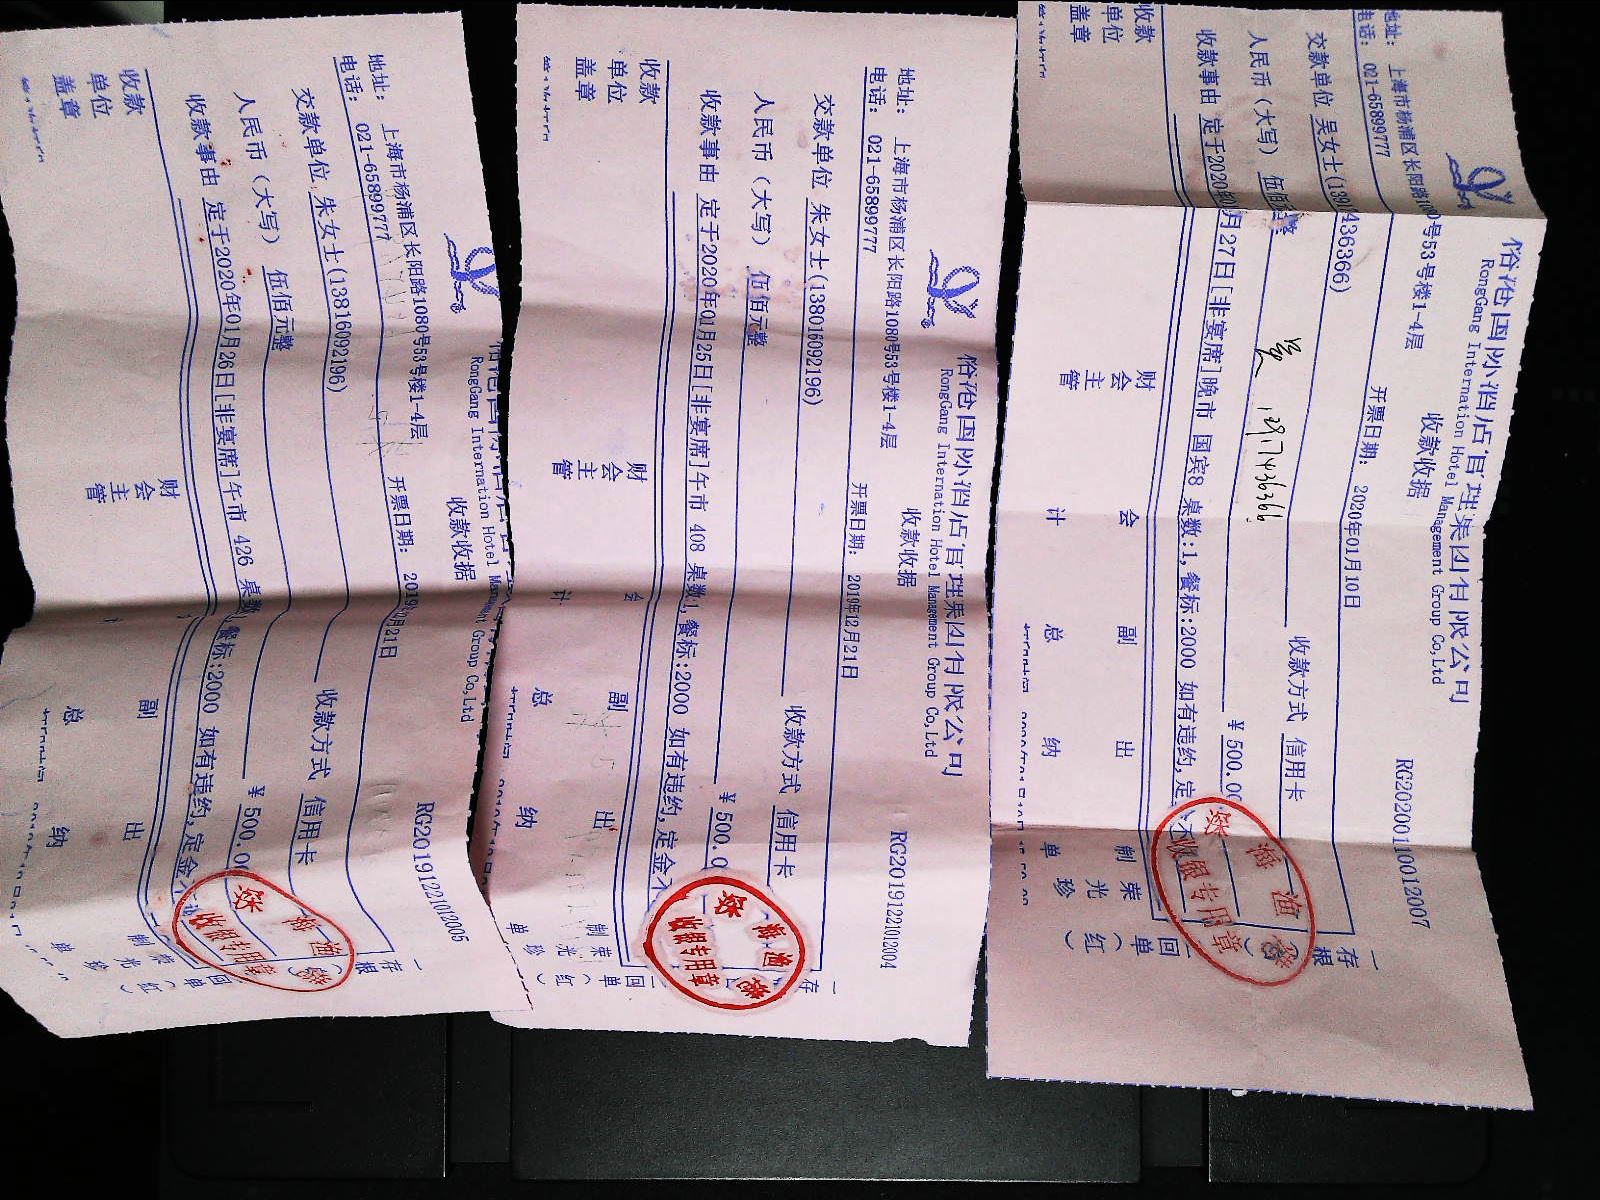 RongGang International Hotel Management Group Co,Ltd
收款收据
地址： 上海市杨浦区长阳路1080号53号楼1-4层
电话： 021-65899777
开票日期： 2019
月21日
RG20191221012005
交款单位 朱女士(13816092196)
收款方式 信用卡
人民币（大写） 伍佰元整
￥500.0
收款事由 定于2020年01月26日[非宴席]午市 426 桌数
餐标:2000 如有违约,定金不
收款单位盖章
财会主管
副总
出纳
制单
荣光珍
存根
回单（红）
收银专用章
RongGang International Hotel Management Group Co,Ltd
收款收据
地址： 上海市杨浦区长阳路1080号53号楼1-4层
电话： 021-65899777
开票日期： 2019年12月21日
RG20191221012004
交款单位 朱女士(138016092196)
收款方式 信用卡
人民币（大写） 伍佰元整
￥500.0
收款事由 定于2020年01月25日[非宴席]午市 408 桌数1,餐标:2000 如有违约,定金不
收款单位盖章
财会主管
会计
副总
出纳
制单
荣光珍
存
回单（红）
收银专用章
国际酒店管理集团有限公司
RongGang International Hotel Management Group Co,Ltd
收款收据
地址： 上海市杨浦区长阳路
号53号楼1-4层
电话： 021-65899777
开票日期： 2020年01月10日
RG20200110012007
交款单位 吴女士(139
436366)
收款方式 信用卡
人民币（大写） 伍佰元整
￥500.00
吴 13917436366
收款事由 定于2020年
月27日[非宴席]晚市 国宾8 桌数:1,餐标:2000 如有违约,定
收款单位盖章
财会主管
会计
副总
出纳
制单
荣光珍
存根
回单（红）
收银专用章